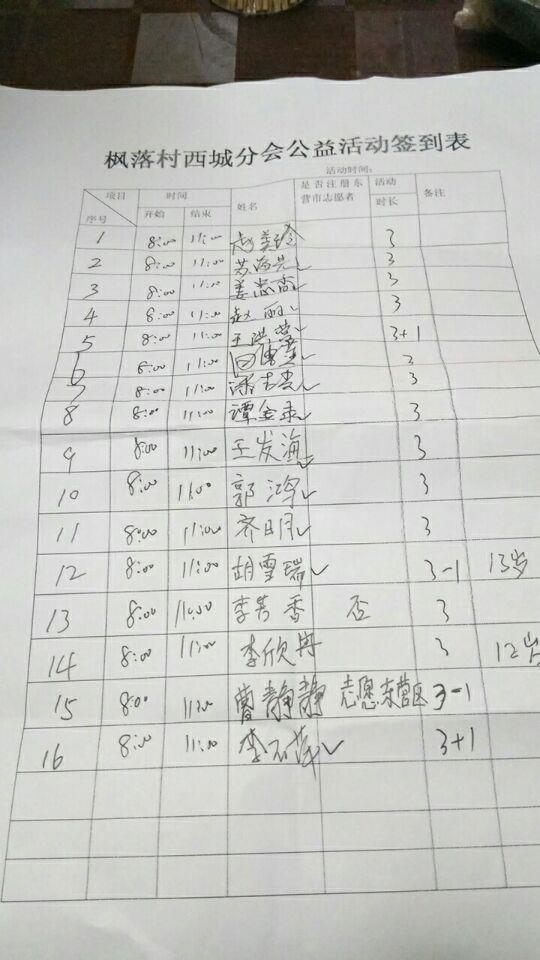 枫落村西城分会公益活动签到表
活动时间:
项目 时间 姓名 是否注册东营市志愿者 活动时长 备注
序号 开始 结束
1 8:00 11:00 赵美玲 3
2 8:00 11:00 苏 3
3 8:00 11:00 姜志尚 3
4 8:00 11:00 赵丽 3
5 8:00 11:00 王洪 3+1
6 8:00 11:00 3
7 8:00 11:00 潘 3
8 8:00 11:00 谭金录 3
9 8:00 11:00 王发海 3
10 8:00 11:00 郭鸿 3
11 8:00 11:00 齐明月 3
12 8:00 11:00 胡雪瑞 3-1 13岁
13 8:00 11:00 李芳香 否 3
14 8:00 11:00 李欣冉 3 12岁
15 8:00 11:00 曹静静 志愿东营区 3-1
16 8:00 11:00 李 萍 3+1